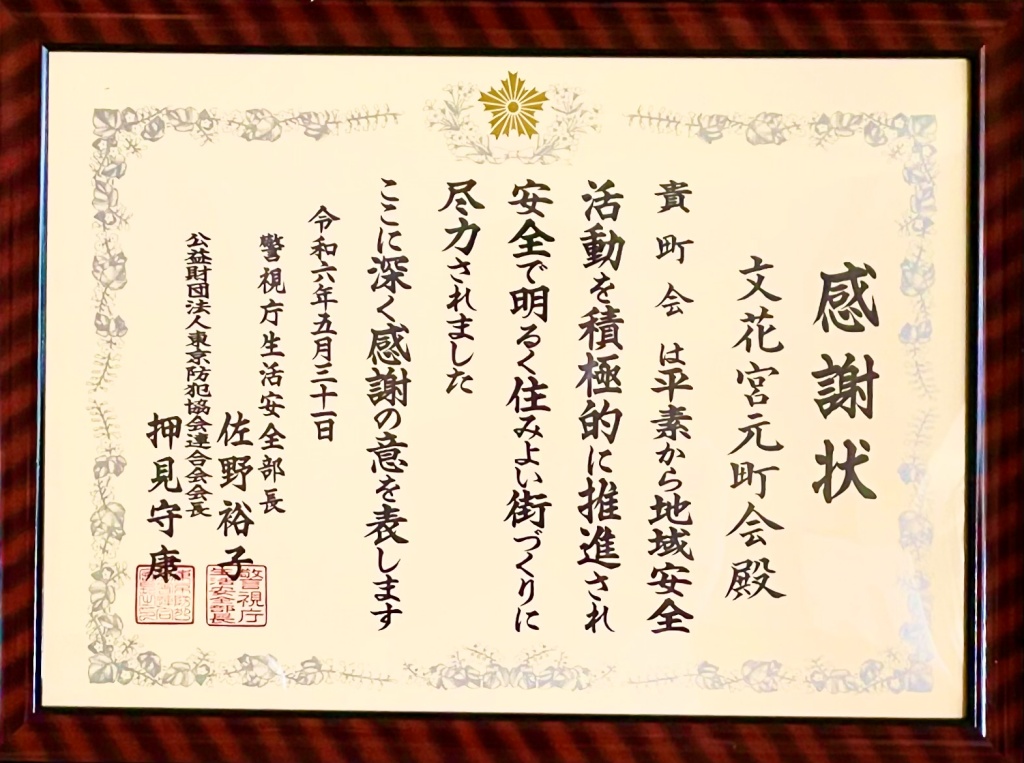 感謝状
文花宮元町会殿
貴町会は平素から地域安全
活動を積極的に推進され
安全で明るく住みよい街づくりに
尽力されました
ここに深く感謝の意を表します
令和六年五月三十一日
警視庁生活安全部長
佐野裕子
警視庁生活安全部長
公益財団法人東京防犯協会連合会会長
押見守康